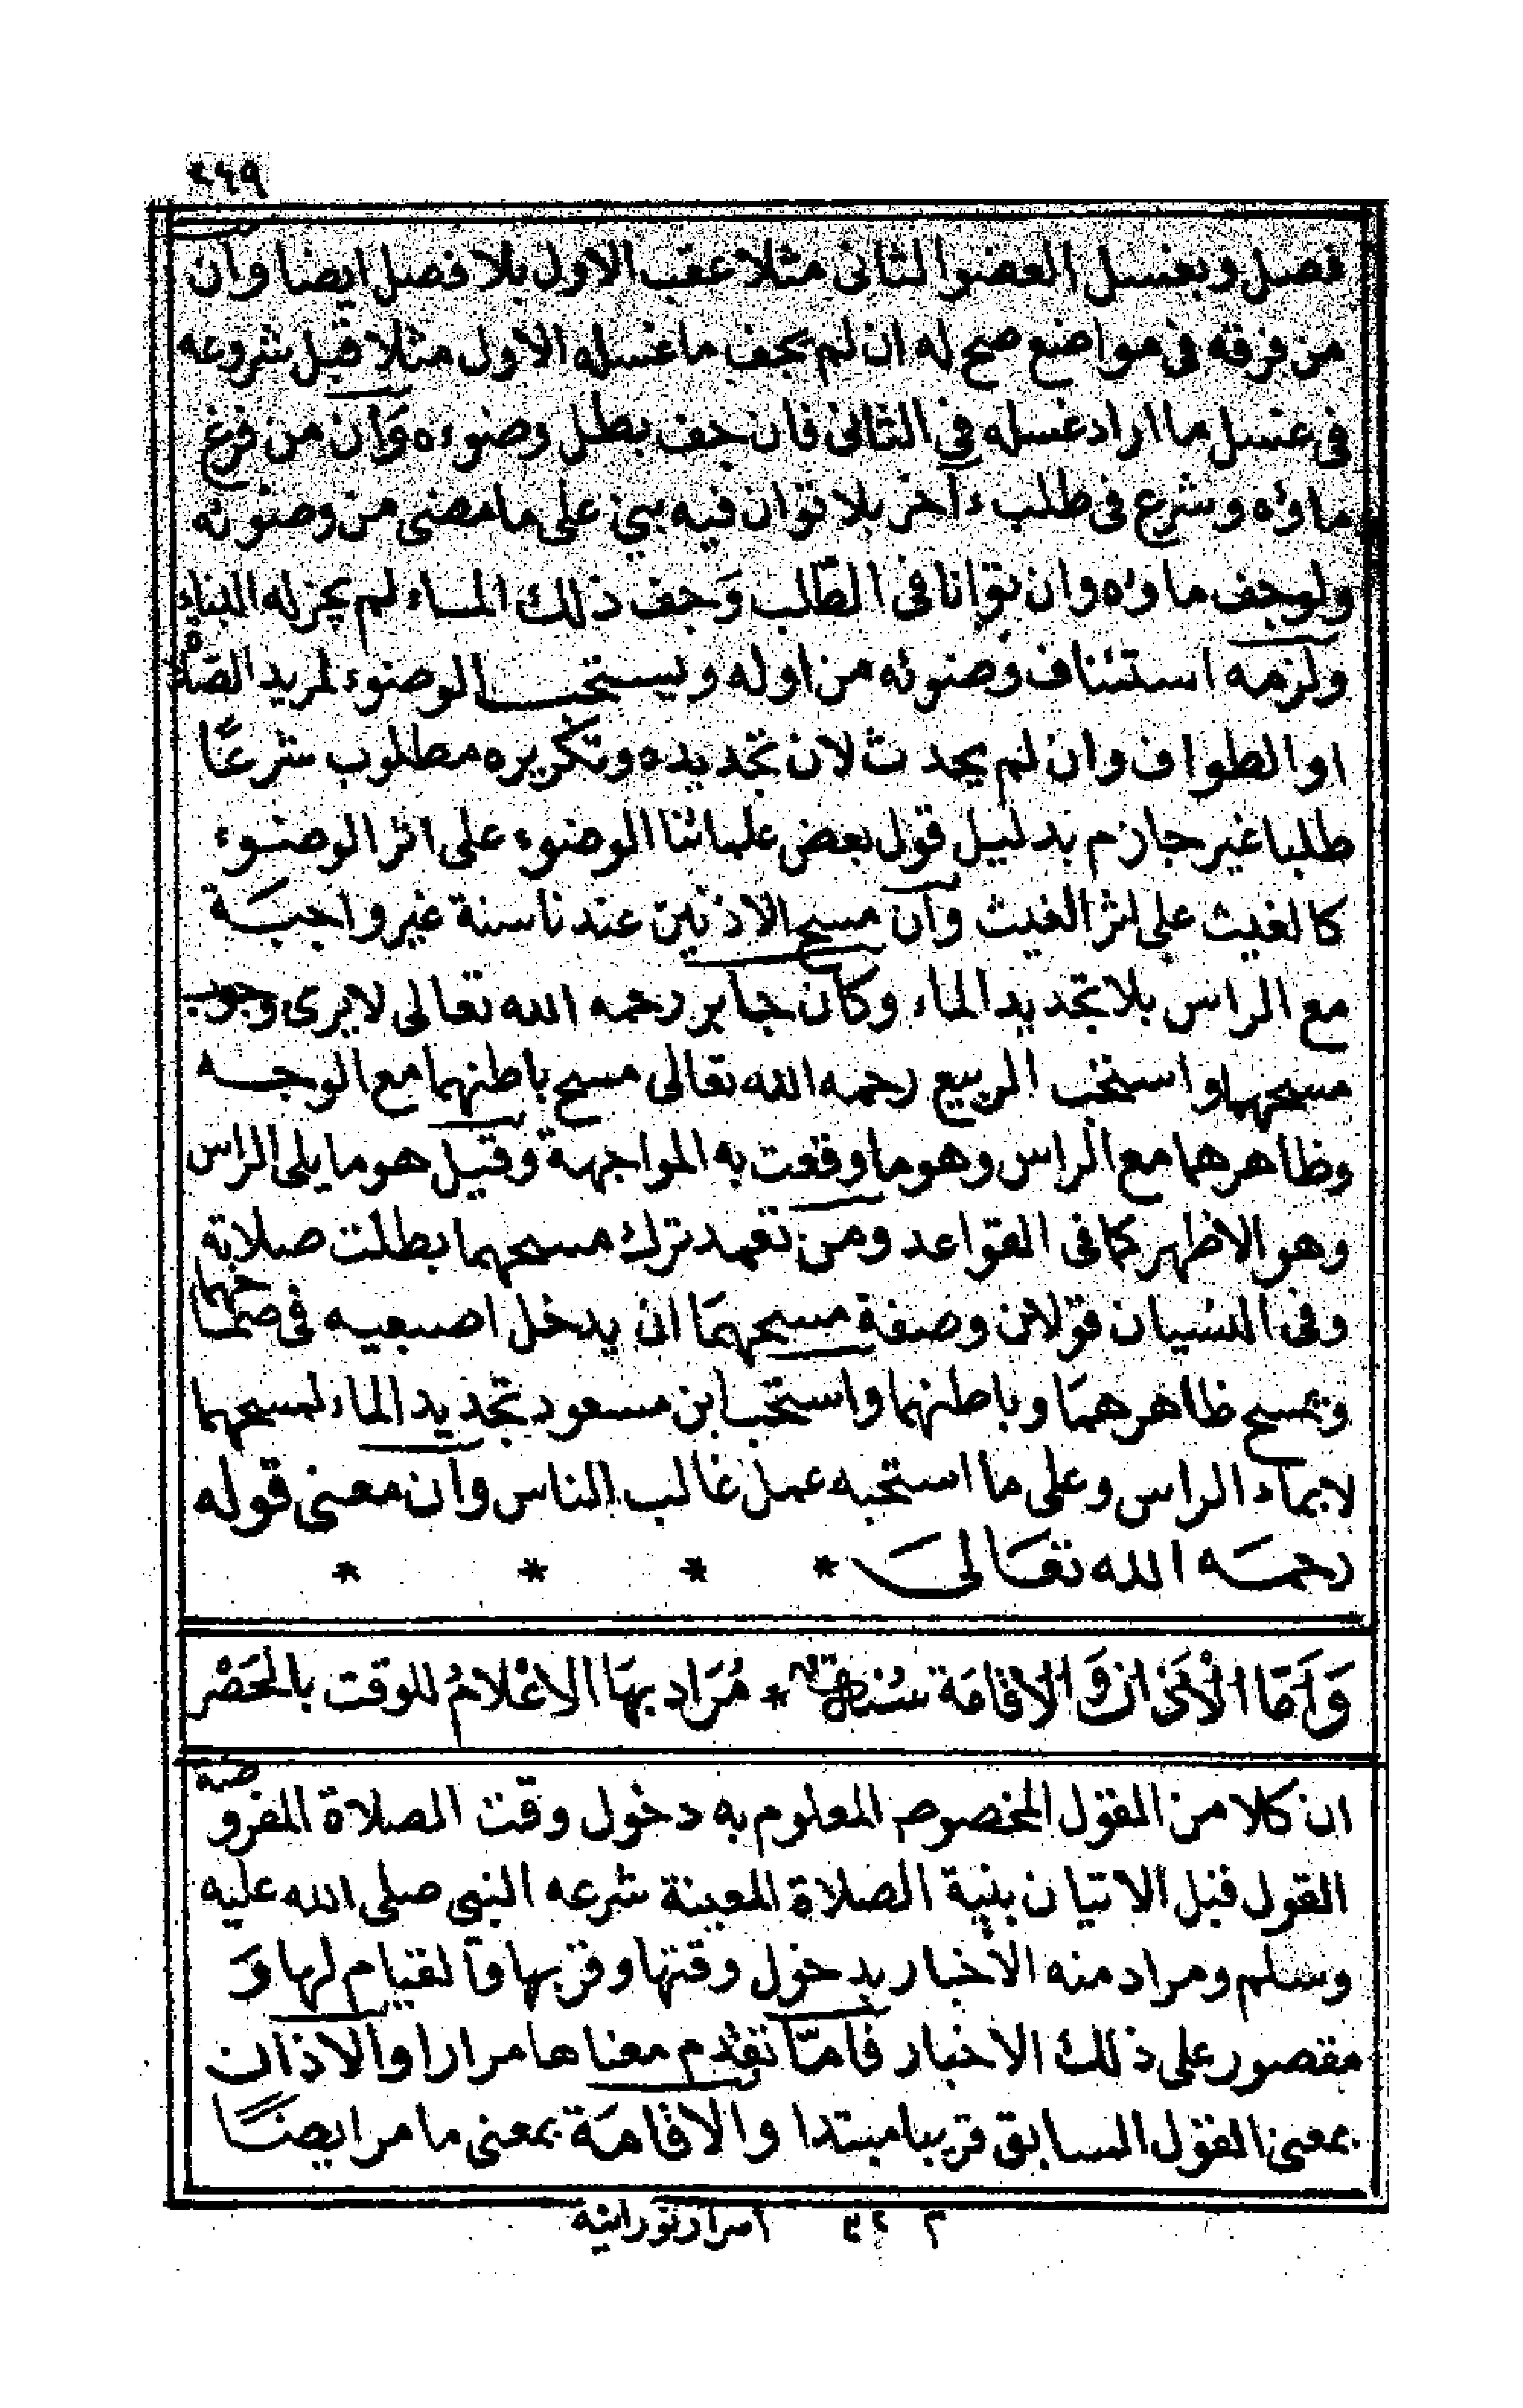 ٢٤٩
فصل وبغسل العضو الثانى مثلا عقب الاول بلا فصل ايضا وان
من فرقه فى مواضع صح له ان لم يجف ما غسله الاول مثلا قبل شروعه
فى غسل ما اراد غسله فى الثانى فان جف بطل وضوءه وان من فرغ
ماؤه وشرع فى طلب ءاخر بلا توان فيه يبنى على ما مضى من وضوئه
ولو جف ماؤه وان توانا فى الطلب وجف ذلك الماء لم يجز له البناء
ولزمه استئناف وضوئه من اوله ويستحب الوضوء لمريد الصلاة
او الطواف وان لم يحدث لان تجديده وتكريره مطلوب شرعا
طلبا غير جازم بدليل قول بعض علمائنا الوضوء على اثر الوضوء
كالغيث على اثر الغيث وان مسح الاذنين عندنا سنة غير واجبة
مع الراس بلا تجديد الماء وكان جابر رحمه الله تعالى لا يرى وجوب
مسحهما واستحب الربيع رحمه الله تعالى مسح باطنهما مع الوجه
وظاهرهما مع الراس وهو ما وقعت به المواجهة وقيل هو ما يلى الراس
وهو الاظهر كما فى القواعد ومن تعمد ترك مسحهما بطلت صلاته
وفى النسيان قولان وصفة مسحهما ان يدخل اصبعيه فى صماخهما
ويمسح ظاهرهما وباطنهما واستحب ابن مسعود تجديد الماء لمسحهما
لا بماء الراس وعلى ما استحبه عمل غالب الناس وان معنى قوله
رحمه الله تعالى * * * *
وَاَمَّا الْاَذَانُ وَالاقَامَة سُنة * مُرَاد بِهَا الاعْلَامُ للوقت بالحَصْر
ان كلا من القول المخصوص المعلوم به دخول وقت الصلاة المفروضة
القول قبل الاتيان بنية الصلاة المعينة شرعه النبى صلى الله عليه
وسلم ومراد منه الاخبار بدخول وقتها وقربها والقيام لها و
مقصور على ذلك الاخبار فامّا تقدم معناها مرارا والاذان
بمعنى القول السابق قريبا مبتدا والاقامة بمعنى ما مر ايضا
م ٣٢ اسرار نورانية